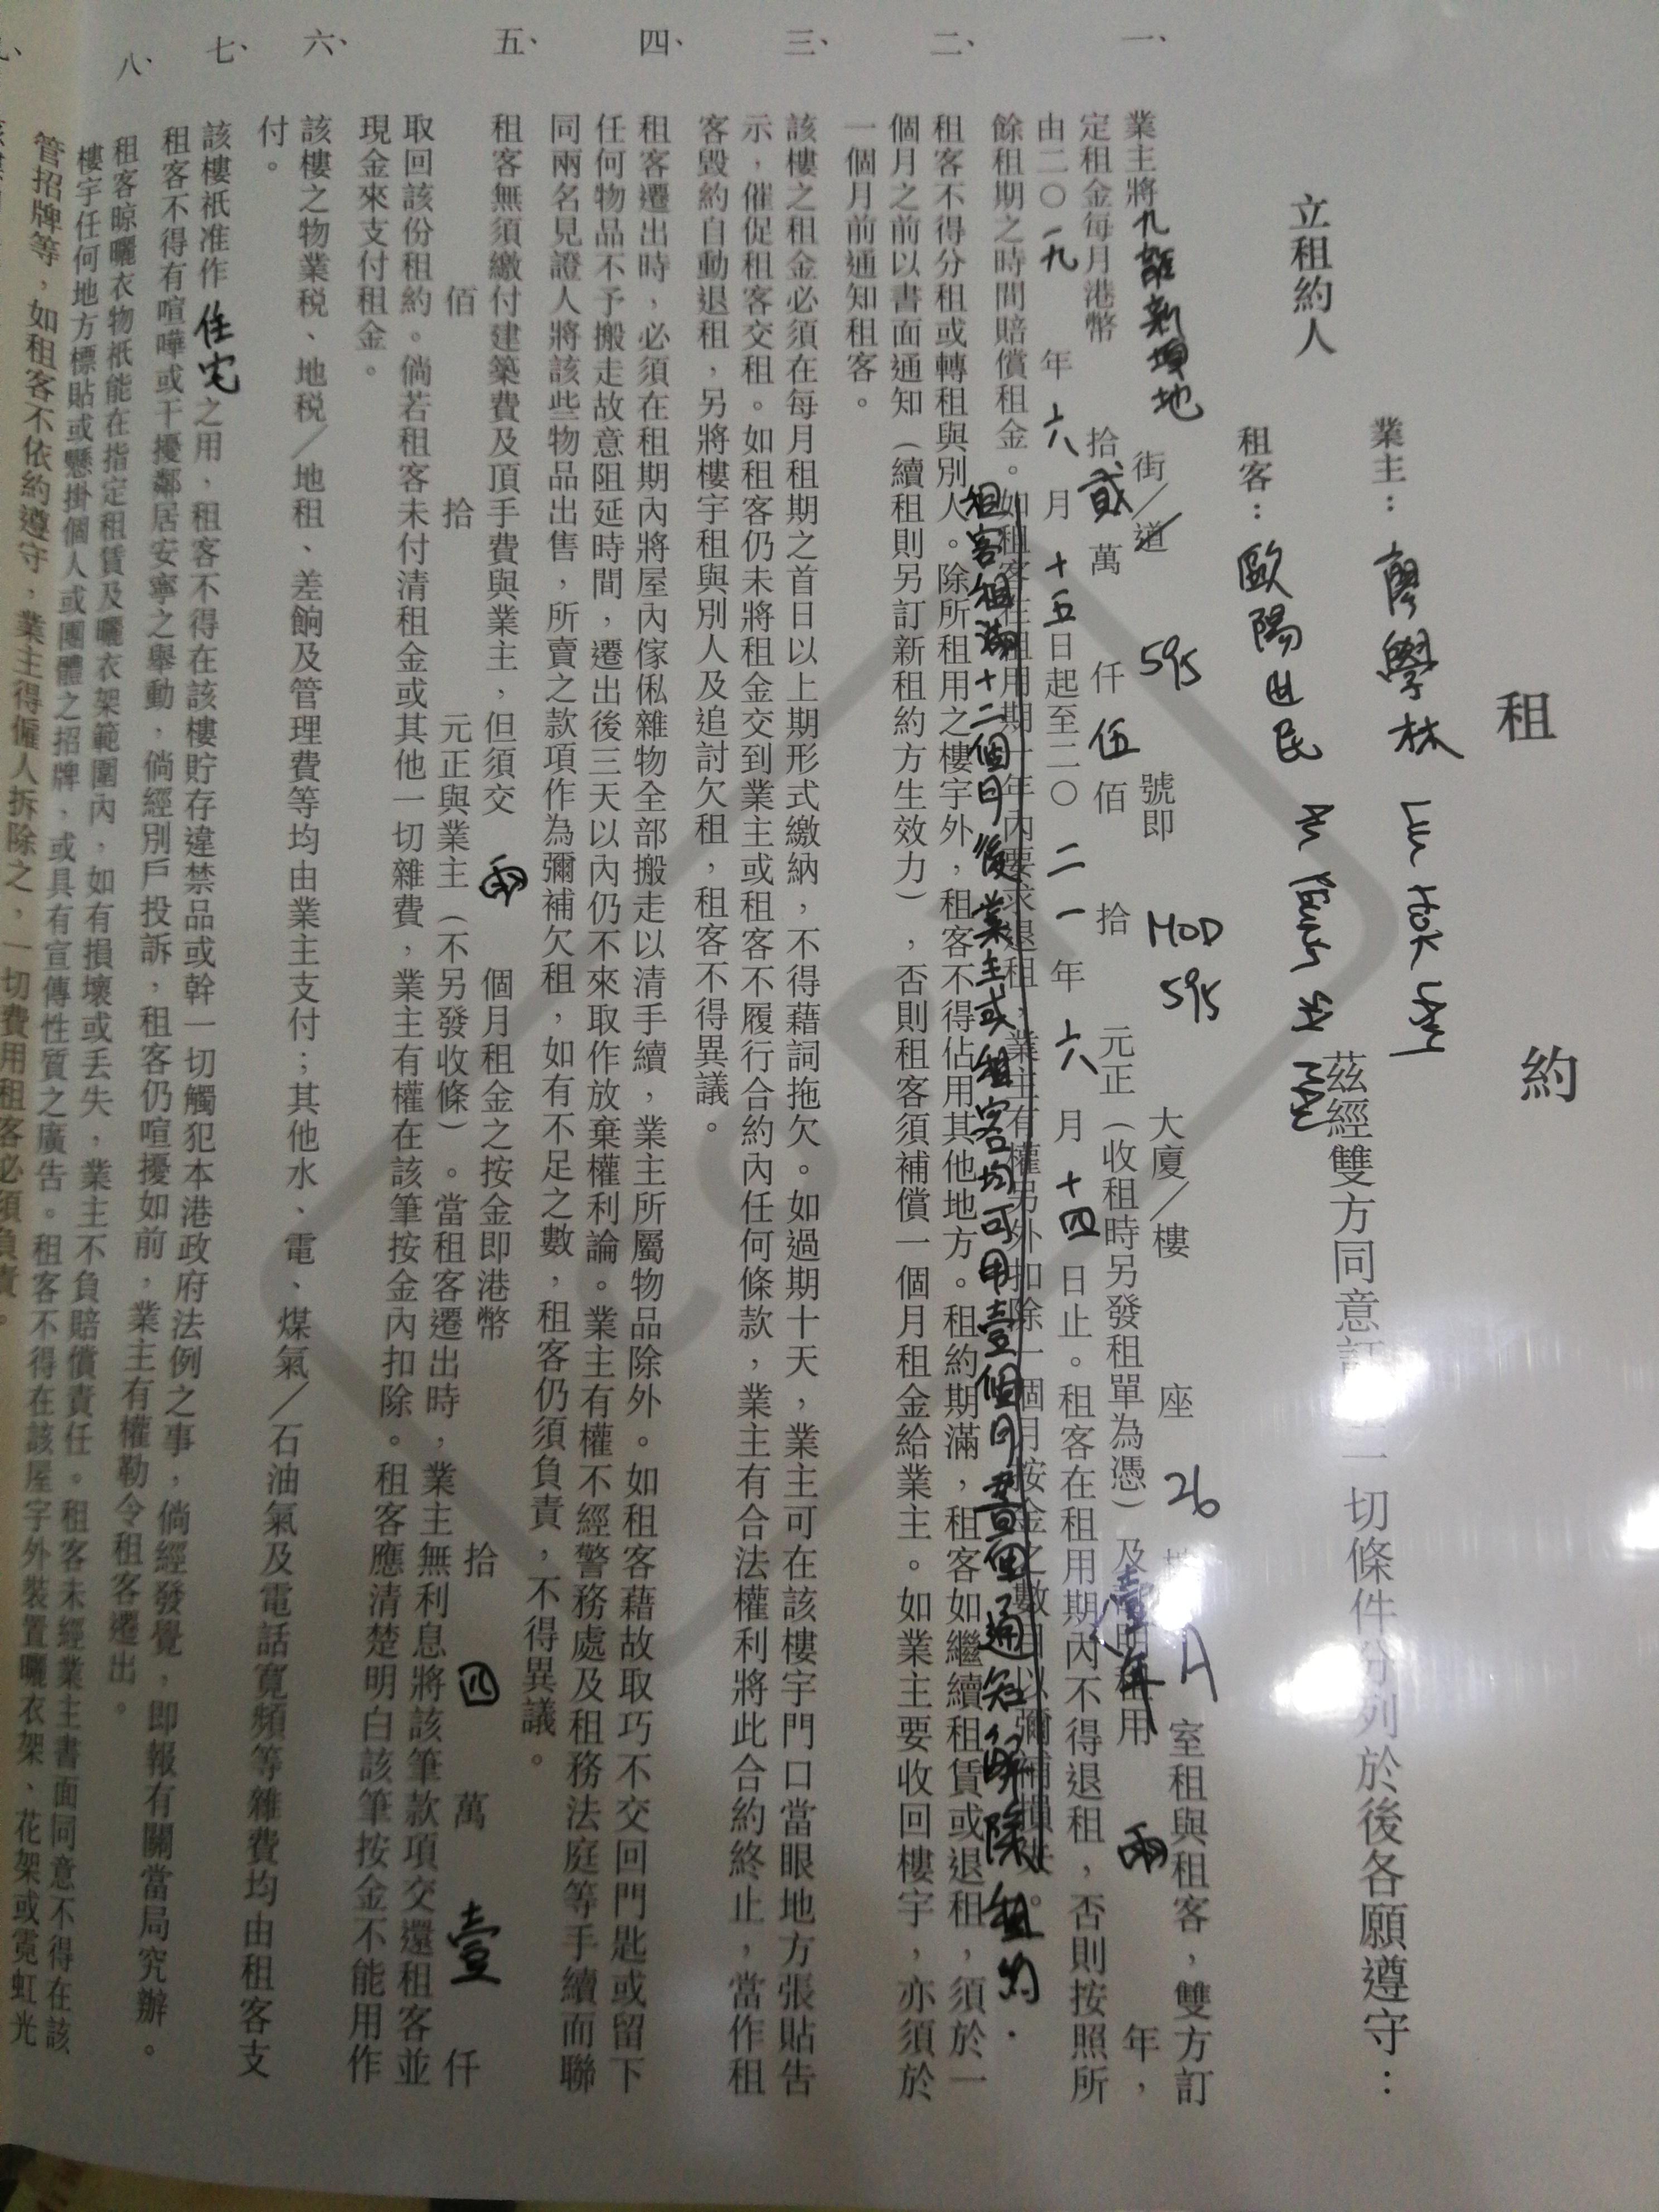 租約
立租約人
業主：廖學林
租客：歐陽世民
茲經雙方同意
一切條件分列於後各願遵守：
一、業主將九龍新填地街／道 595 號即 MOD 595 大廈／樓 座 26 A 室租與租客，雙方訂
定租金每月港幣 拾 貳 萬 仟 伍 佰 拾 元正（收租時另發租單為憑）及 租用 兩 年，
由二〇一九年六月十五日起至二〇二一年六月十四日止。租客在租用期內不得退租，否則按照所
餘租期之時間賠償租金。如租客在租用期一年內要求退租，業主有權另外扣除一個月按金之數目以彌補損失。
租客租滿十二個月後業主或租客均可用壹個月書面通知解除租約．
二、租客不得分租或轉租與別人。除所租用之樓宇外，租客不得佔用其他地方。租約期滿，租客如繼續租賃或退租，須於一
個月之前以書面通知（續租則另訂新租約方生效力），否則租客須補償一個月租金給業主。如業主要收回樓宇，亦須於
一個月前通知租客。
三、該樓之租金必須在每月租期之首日以上期形式繳納，不得藉詞拖欠。如過期十天，業主可在該樓宇門口當眼地方張貼告
示，催促租客交租。如租客仍未將租金交到業主或租客不履行合約內任何條款，業主有合法權利將此合約終止，當作租
客毀約自動退租，另將樓宇租與別人及追討欠租，租客不得異議。
四、租客遷出時，必須在租期內將屋內傢俬雜物全部搬走以清手續，業主所屬物品除外。如租客藉故取巧不交回門匙或留下
任何物品不予搬走故意阻延時間，遷出後三天以內仍不來取作放棄權利論。業主有權不經警務處及租務法庭等手續而聯
同兩名見證人將該些物品出售，所賣之款項作為彌補欠租，如有不足之數，租客仍須負責，不得異議。
五、租客無須繳付建築費及頂手費與業主，但須交 兩 個月租金之按金即港幣 拾 四 萬 壹 仟
佰 拾 元正與業主（不另發收條）。當租客遷出時，業主無利息將該筆款項交還租客並
取回該份租約。倘若租客未付清租金或其他一切雜費，業主有權在該筆按金內扣除。租客應清楚明白該筆按金不能用作
現金來支付租金。
六、該樓之物業稅、地稅／地租、差餉及管理費等均由業主支付；其他水、電、煤氣／石油氣及電話寬頻等雜費均由租客支
付。
七、該樓祇准作住宅之用，租客不得在該樓貯存違禁品或幹一切觸犯本港政府法例之事，倘經發覺，即報有關當局究辦。
租客不得有喧嘩或干擾鄰居安寧之舉動，倘經別戶投訴，租客仍喧擾如前，業主有權勒令租客遷出。
八、租客晾曬衣物祇能在指定租賃及曬衣架範圍內，如有損壞或丟失，業主不負賠償責任。租客未經業主書面同意不得在該
樓宇任何地方標貼或懸掛個人或團體之招牌，或具有宣傳性質之廣告。租客不得在該屋宇外裝置曬衣架、花架或霓虹光
管招牌等，如租客不依約遵守，業主得僱人拆除之，一切費用租客必須負責。
COPY